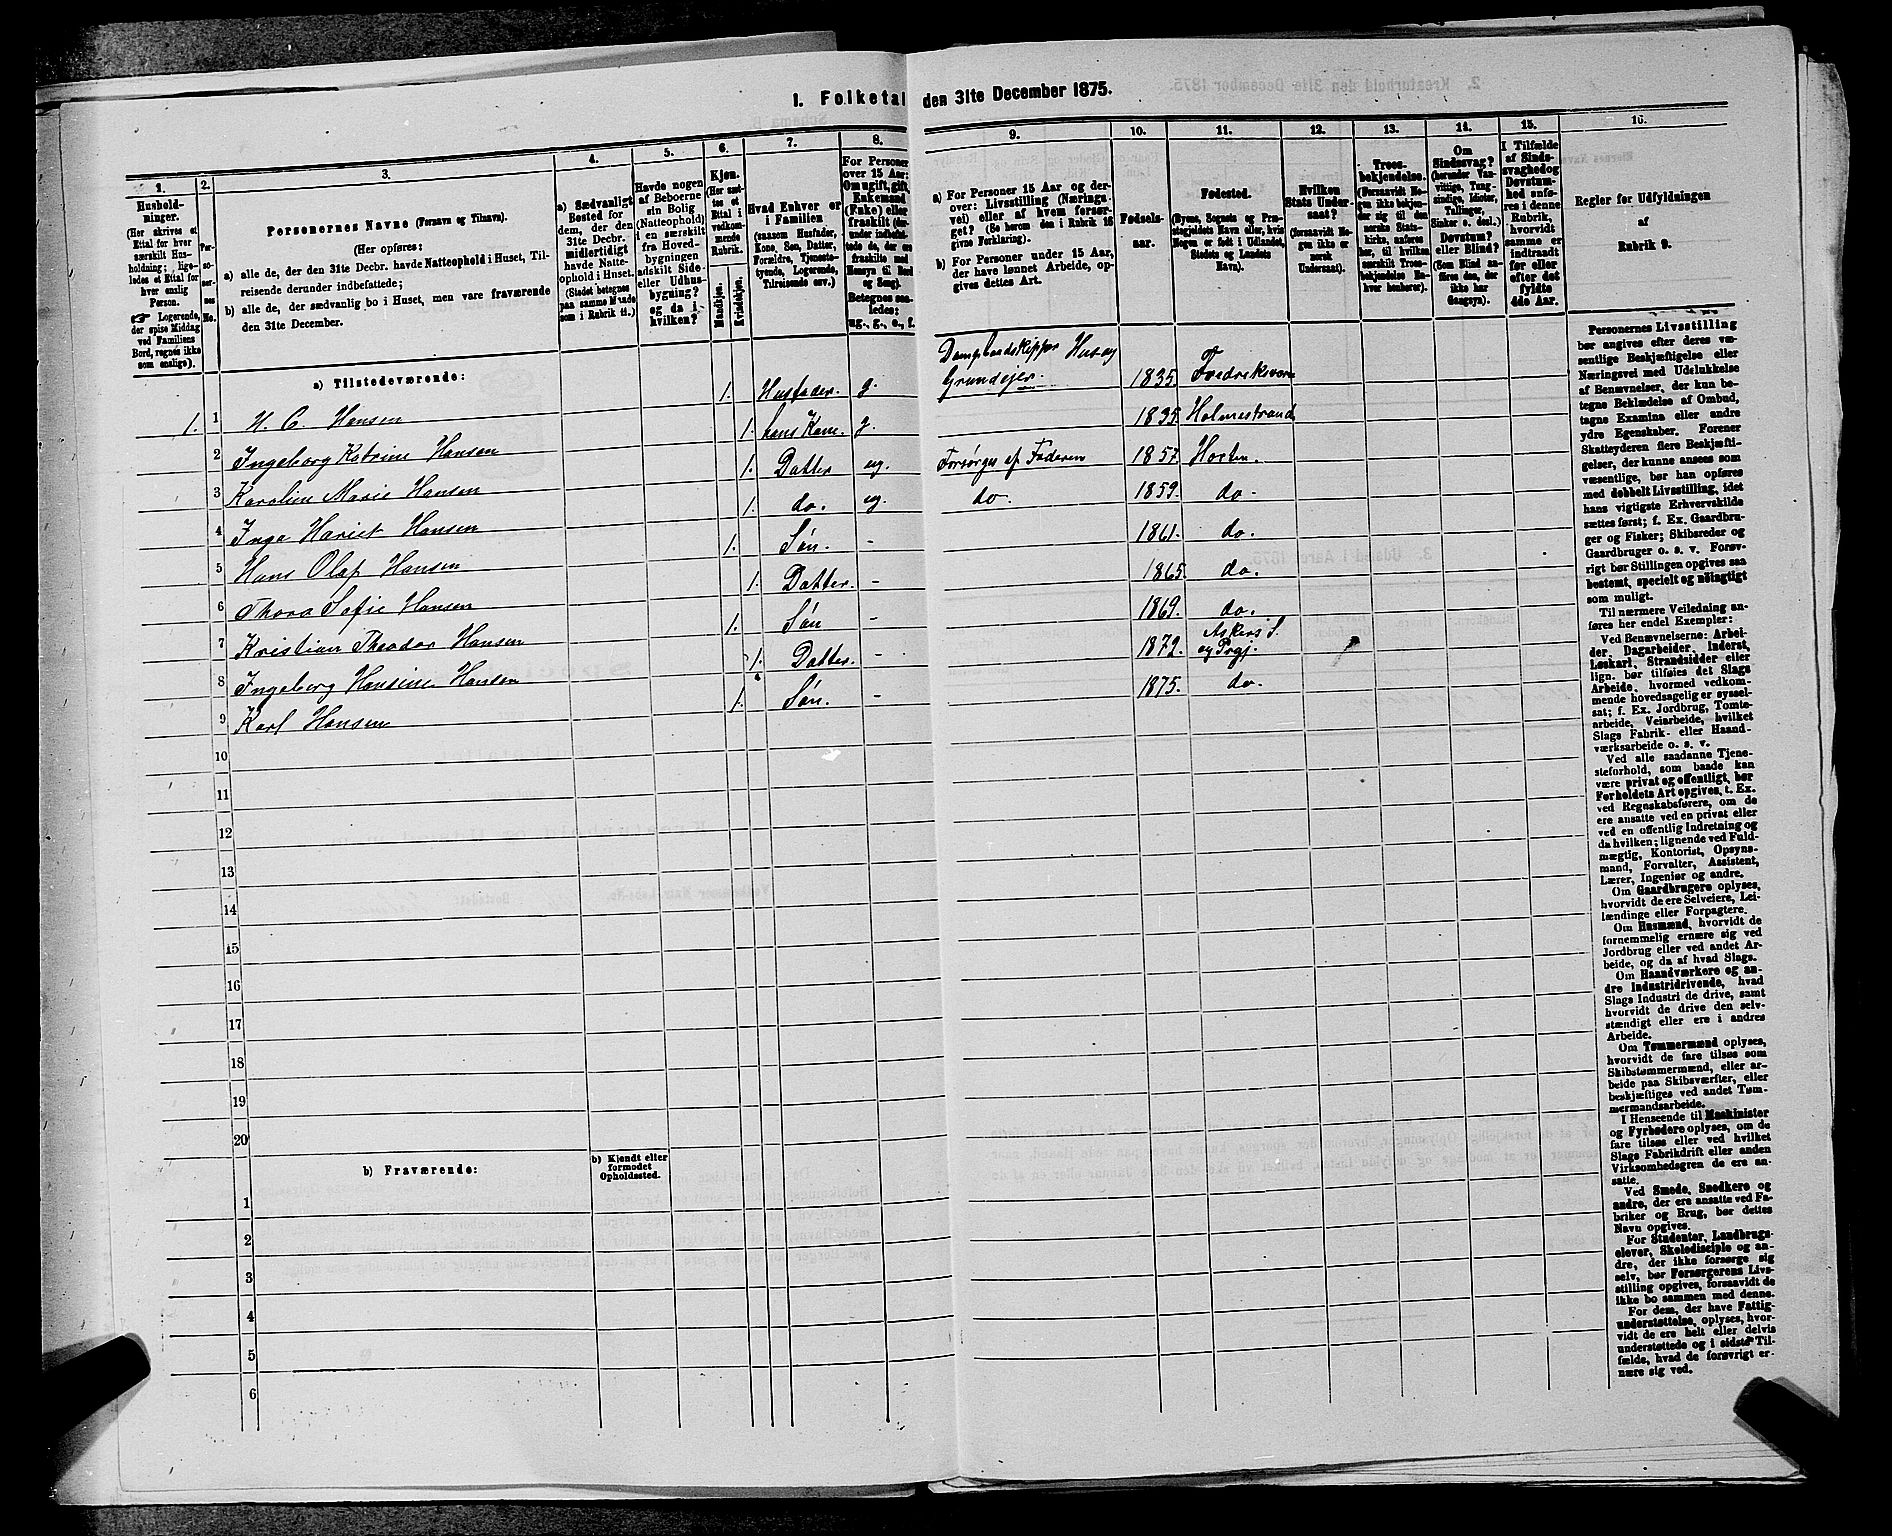 1. Folketal den 31te December 1875.
1. 2. 3. 4. 5. 6. 7. 8. 9. 10. 11. 12. 13. 14. 15. 16.
Hushold-
ninger.
(Her skrives et
Ettal for hver
særskilt Hus-
holdning; lige-
ledes et Ettal for
hver enslig
Person.
☞ Logerende,
der spise Middag
ved Familiens
Bord, regnes ikke
som enslige).
Per-
so-
ner-
nes
No.
Personernes Navne (Fornavn og Tilnavn).
(Her opføres:
a) alle de, der den 31te Decbr. havde Natteophold i Huset, Til-
reisende derunder indbefattede;
b) alle de, der sædvanlig bo i Huset, men vare fraværende
den 31te December.
a) Sædvanligt
Bosted for
dem, der den
31te Decbr.
midlertidigt
havde Natte-
ophold i Huset.
(Stedet betegnes
paa samme Maade
som i Rubrik 11.)
Havde nogen
af Beboerne
sin Bolig
(Natteophold)
i en særskilt
fra Hoved-
bygningen
adskilt Side-
eller Udhus-
bygning?
og da i
hvilken?
Kjøn.
(Her sæt-
tes et
Ettal i
vedkom-
mende
Rubrik.
Mandkjøn.
Kvindekjøn.
Hvad Enhver er
i Familien
(saasom Husfader,
Kone, Søn, Datter,
Forældre, Tjeneste-
tyende, Logerende,
Tilreisende osv.)
For Personer
over 15 Aar:
Om ugift, gift,
Enkemand
(Enke) eller
fraskilt (der-
under indbefat-
tede de, der ere
fraskilte med
Hensyn til Bord
og Seng).
Betegnes saa-
ledes:
ug., g., e., f.
a) For Personer 15 Aar og der-
over: Livsstilling (Nærings-
vei) eller af hvem forsør-
get? (Se herom den i Rubrik 16
givne Forklaring).
b) For Personer under 15 Aar,
der have lønnet Arbeide, op-
gives dettes Art.
Fødsels-
aar.
Fødested.
(Byens, Sognets og Præ-
stegjeldets Navn eller, hvis
Nogen er født i Udlandet,
Stedets og Landets
Navn).
Hvilken
Stats Under-
saat?
(forsaavidt No-
gen ikke er
norsk
Undersaat).
Troes-
bekjendelse.
(Forsaavidt No-
gen ikke bekjen-
der sig til den
norske Stats-
kirke, anføres
her, til hvilken
særskilt Troes-
bekjendelse En-
hver henhører).
Om
Sindssvag?
(herunder Van-
vittige, Tung-
sindige, Idioter,
Tullinger,
Sinker o. desl.)
Døvstum?
eller Blind?
(Som Blind an-
føres den, der
ikke har
Gangsyn).
I Tilfælde
af Sinds-
svaghed og
Døvstum-
hed anfø-
res i denne
Rubrik,
hvorvidt
samme er
indtraadt
før eller
efter det
fyldte
4de Aar.
Regler for Udfyldningen
af
Rubrik 9.
a) Tilstedeværende:
1. 1 H. C. Hansen 1. Husfader. g. Dampbaadskipper Hus og Grundejer. 1835 Fredriksvern
2 Ingeborg Katrine Hansen 1. hans Kone. g. 1835 Holmestrand
3 Karoline Marie Hansen 1. Datter ug. Forsørges af Faderen 1857 Horten.
4 Inga Hariet Hansen 1. do. ug. do. 1859. do.
5 Hans Olaf Hansen 1. Søn. - 1861. do.
6 Thora Sofie Hansen 1. Datter. - 1865. do.
7 Kristian Theodor Hansen 1. Søn - 1869. do.
8 Ingeborg Hansine Hansen 1. Datter. - 1872. Askers S. og Prgj.
9 Karl Hansen 1. Søn. - 1875. do.
10
11
12
13
14
15
16
17
18
19
20
b) Fraværende:
b) Kjendt eller
formodet
Opholdssted.
1
2
3
4
5
6
Personernes Livsstilling
bør angives efter deres væ-
sentlige Beskjæftigelse eller
Næringsvei med Udelukkelse
af Benævnelser, der kun be-
tegne Beklædelse af Ombud,
tagne Examina eller andre
ydre Egenskaber. Forener
Skatteyderen flere Beskjæfti-
gelser, der kunne ansees som
væsentlige, bør han opføres
med dobbelt Livsstilling, idet
hans vigtigste Erhvervskilde
sættes først; f. Ex. Gaardbru-
ger og Fisker; Skibsreder og
Gaardbruger o. s. v. Forøv-
rigt bør Stillingen opgives saa
bestemt, specielt og nøiagtigt
som muligt.
Til nærmere Veiledning an-
føres her endel Exempler:
Ved Benævnelserne: Arbei-
der, Dagarbeider, Inderst,
Løskarl, Strandsidder eller
lign. bør tilføies det Slags
Arbeide, hvormed vedkom-
mende hovedsagelig er syssel-
sat; f. Ex. Jordbrug, Tomte-
arbeide, Veiarbeide, hvilket
Slags Fabrik- eller Haand-
værksarbeide o. s. v.
Ved alle saadanne Tjene-
steforhold, som baade kan
være privat og offentligt, bør
Forholdets Art opgives, t. Ex.
ved Regnskabsførere, om de
ere ansatte ved en privat eller
ved en offentlig Indretning og
da hvilken; lignende ved Fuld-
mægtig, Kontorist, Opsyns-
mand, Forvalter, Assistent,
Lærer, Ingeniør og andre.
Om Gaardbrugere oplyses,
hvorvidt de ere Selveiere, Lei-
lændinge eller Forpagtere.
Om Husmænd, hvorvidt de
fornemmelig ernære sig ved
Jordbrug eller ved andet Ar-
beide, og da af hvad Slags.
Om Haandværkere og an-
dre Industridrivende, hvad
Slags Industri de drive, samt
hvorvidt de drive den selv-
stændigt eller ere i andres
Arbeide.
Om Tømmermænd oplyses,
hvorvidt de fare tilsøs som
Skibstømmermænd, eller ar-
beide paa Skibsværfter, eller
beskjæftiges ved andet Tøm-
mermandsarbeide.
I Henseende til Maskinister
og Fyrbødere oplyses, om de
fare tilsøs eller ved hvilket
Slags Fabrikdrift eller anden
Virksomhedsgren de ere an-
satte.
Ved Smede, Snedkere og
andre, der ere ansatte ved Fa-
briker og Brug, bør dettes
Navn opgives.
For Studenter, Landbrugs-
elever, Skoledisciple og an-
dre, der ikke forsørge sig
selv, bør Forsørgerens Livs-
stilling opgives, forsaavidt de
ikke bo sammen med denne.
For dem, der have Fattig-
understøttelse, oplyses, hvor-
vidt de ere helt eller delvis
understøttede og i sidste Til-
fælde, hvad de forøvrigt er-
nære sig ved.